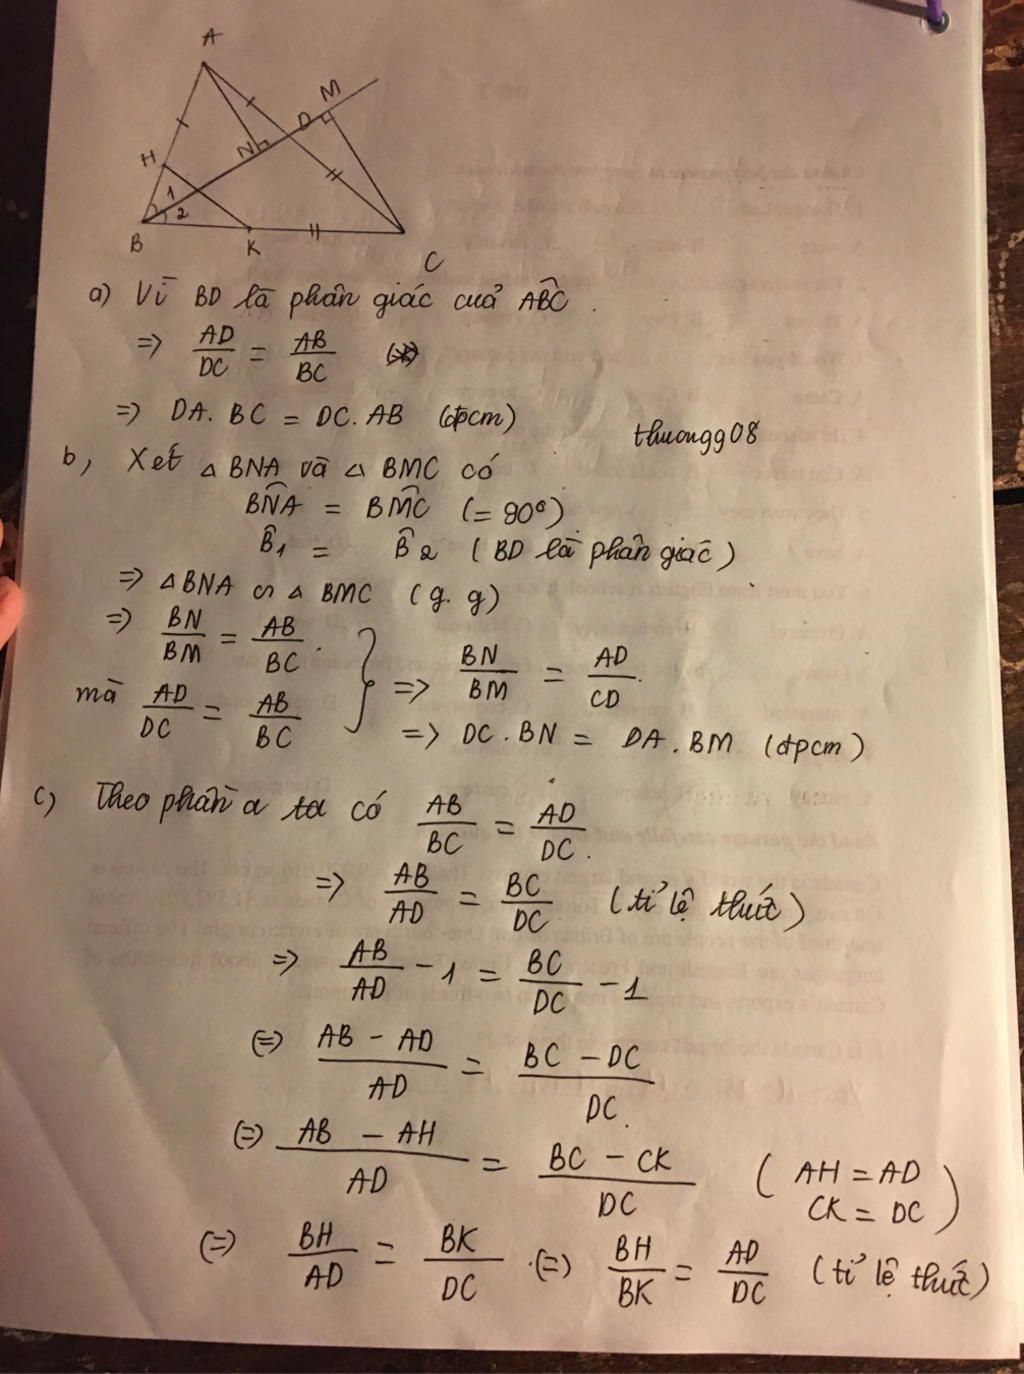 A
M
D
N
H
1
2
B
K
C
a) Vì BD là phân giác cuả ABC^ .
=> AD/DC = AB/BC (*)
=> DA. BC = DC. AB (đpcm)
thuongg08
b, Xét △ BNA và △ BMC có
BNA^ = BMC^ (= 90°)
B̂1 = B̂2 ( BD là phân giác )
=> △ BNA ∽ △ BMC ( g. g)
=> BN/BM = AB/BC .
mà AD/DC = AB/BC
} => BN/BM = AD/CD .
=> DC . BN = DA . BM (đpcm)
c, Theo phần a ta có AB/BC = AD/DC .
=> AB/AD = BC/DC (tỉ lệ thức)
=> AB/AD - 1 = BC/DC - 1
(=) AB - AD/AD = BC - DC/DC .
(=) AB - AH/AD = BC - CK/DC ( AH = AD CK = DC )
(=) BH/AD = BK/DC . (=) BH/BK = AD/DC (tỉ lệ thức)